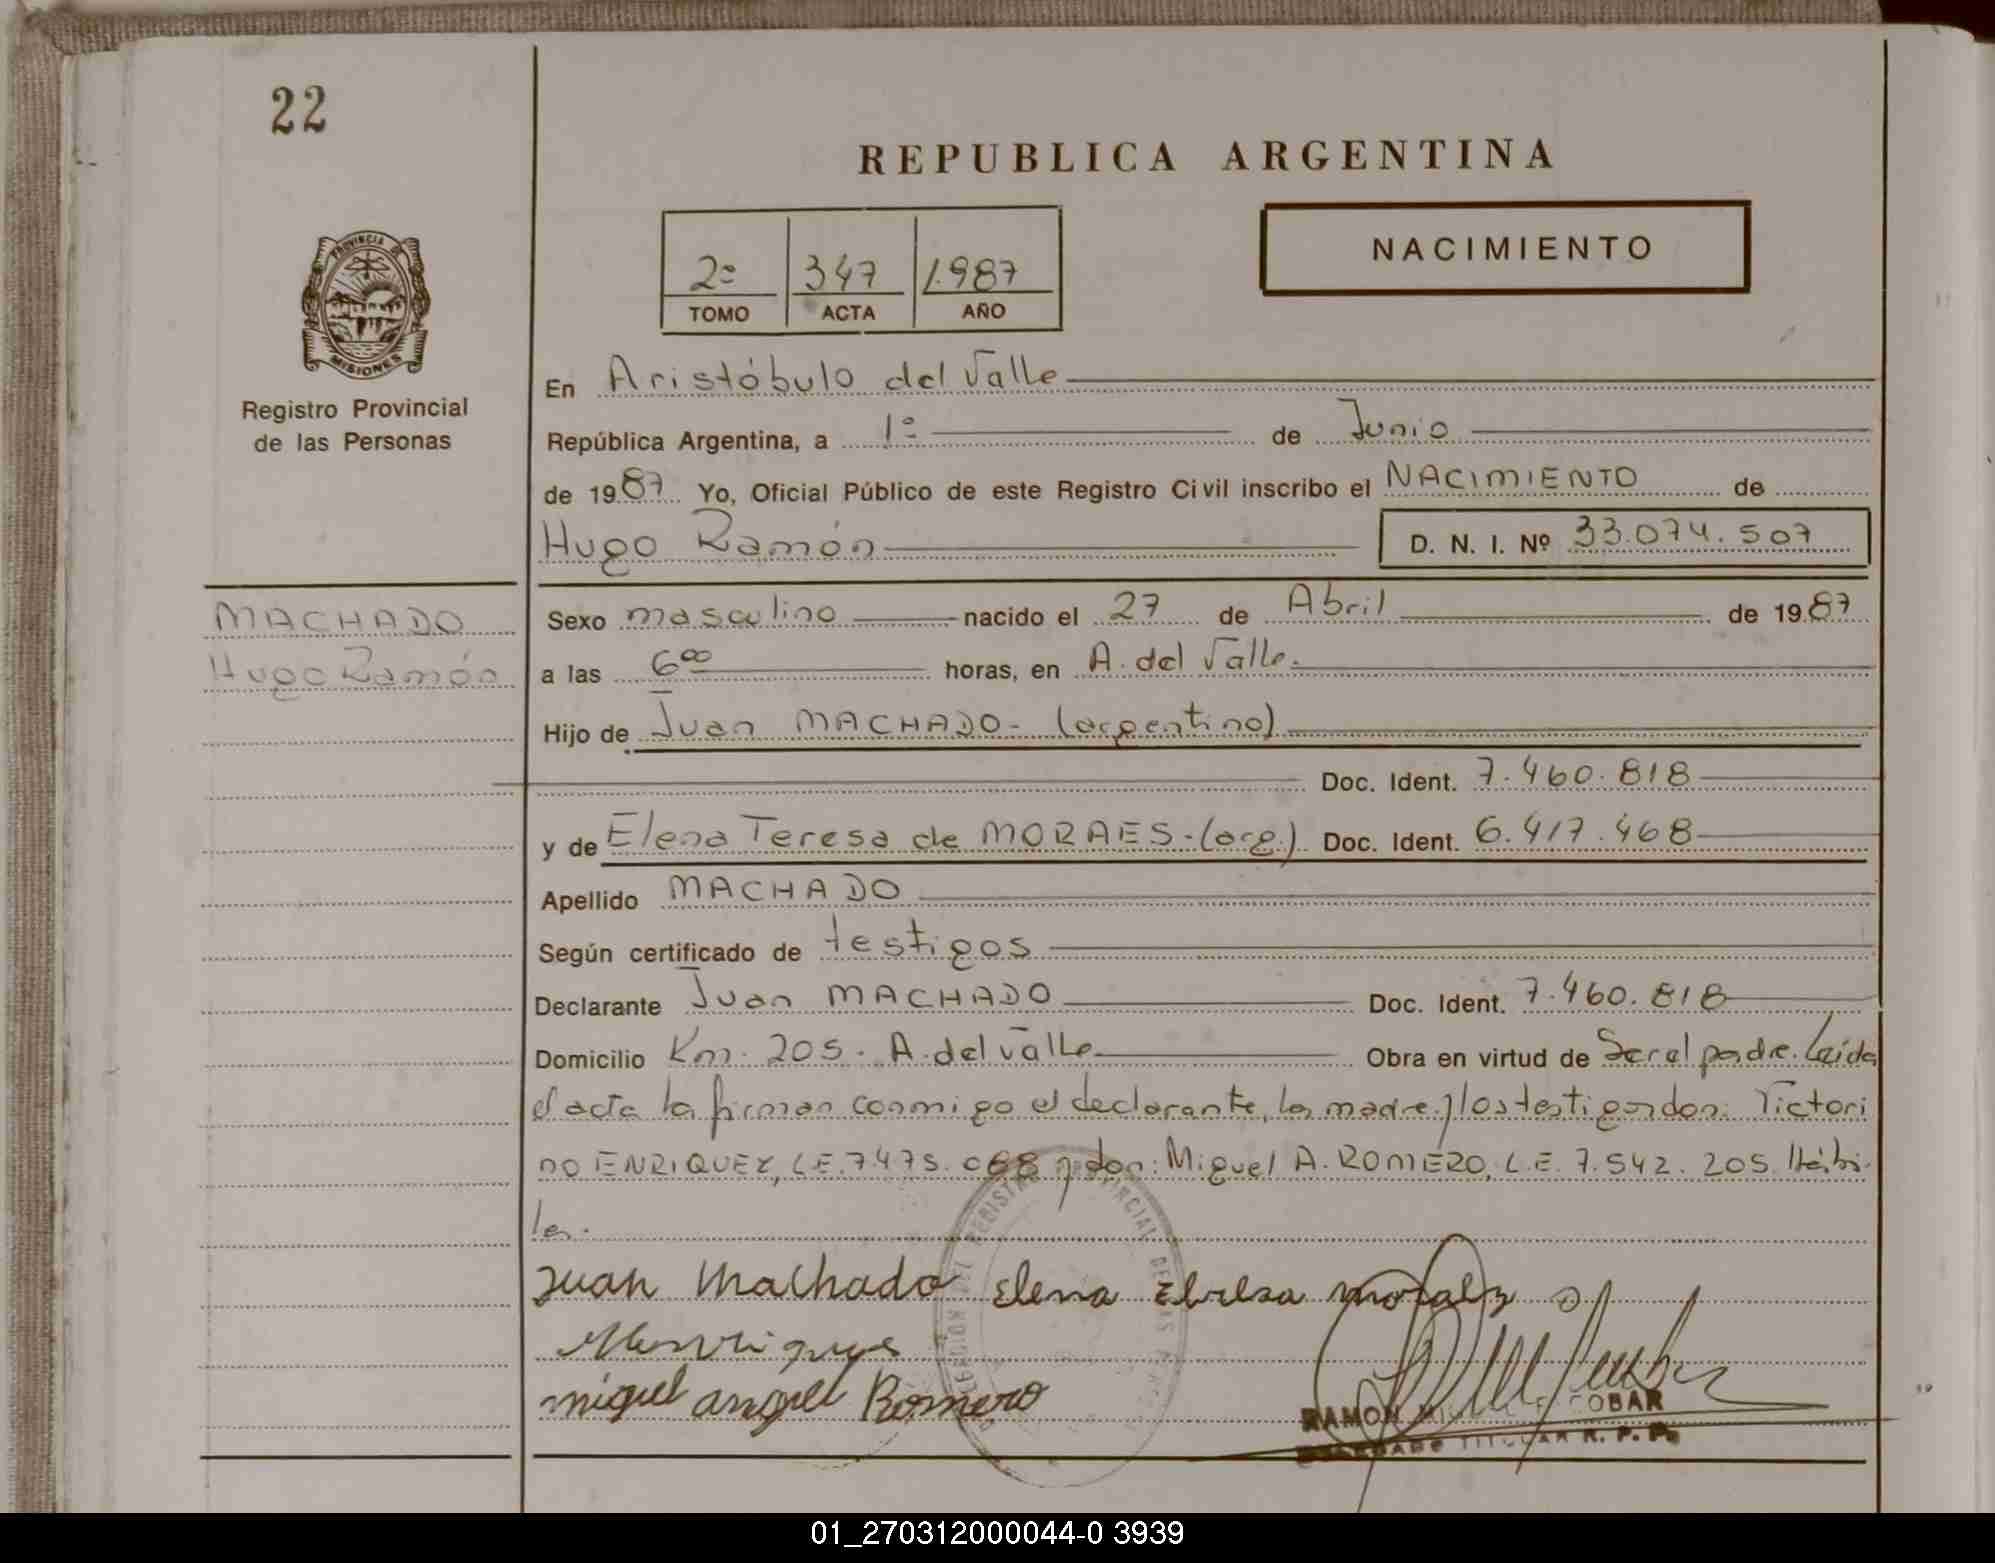 22
REPUBLICA ARGENTINA
NACIMIENTO
2º 347 1.987
TOMO ACTA AÑO
PROVINCIA DE
MISIONES
Registro Provincial
de las Personas
En Aristóbulo del Valle
República Argentina, a 1º de Junio
de 1987 Yo, Oficial Público de este Registro Civil inscribo el NACIMIENTO de
Hugo Ramón D. N. I. Nº 33.074.507
MACHADO
Hugo Ramón
Sexo masculino nacido el 27 de Abril de 1987
a las 6⁰⁰ horas, en A. del Valle.
Hijo de Juan MACHADO- (argentino)
Doc. Ident. 7.460.818
y de Elena Teresa de MORAES-(arg.) Doc. Ident. 6.417.468
Apellido MACHADO
Según certificado de testigos
Declarante Juan MACHADO Doc. Ident. 7.460.818
Domicilio Km. 205. A.del Valle Obra en virtud de Ser el padre. Leída
el acta la firman conmigo el declarante, la madre y los testigos don: Victori
no ENRIQUEZ, L.E. 7.475.068 y don: Miguel A. ROMERO, L.E. 7.542.205. Hábi-
les.
Juan Machado Elena
miguel angel Romero
RAMON COBAR
TITULAR R. P. P.
REGISTRO PROVINCIAL DE LAS
01_270312000044-0 3939